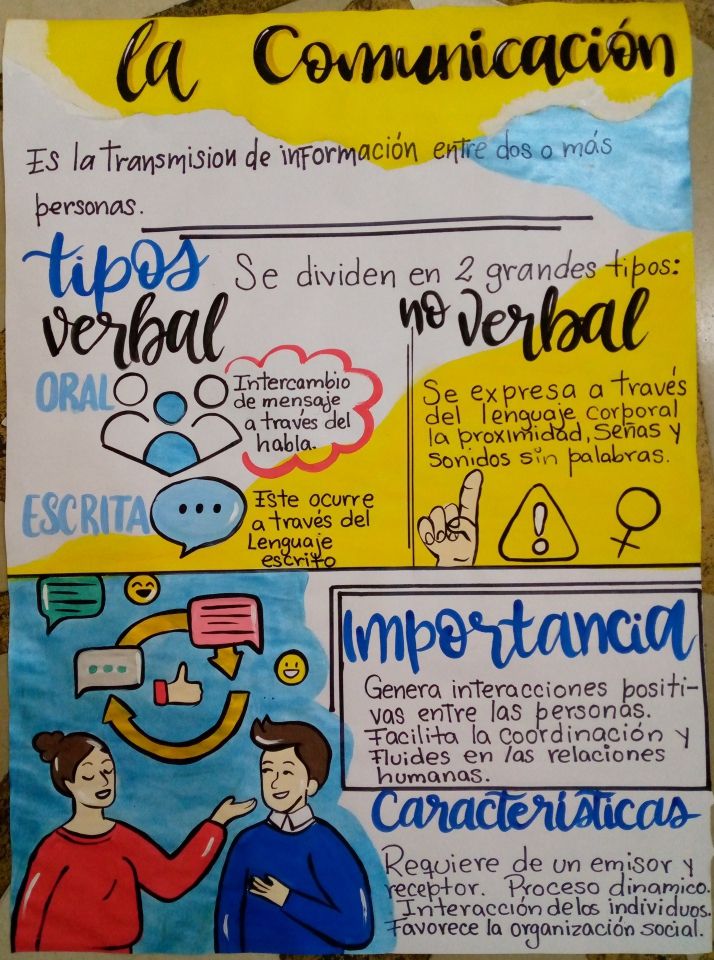 la Comunicación
Es la transmision de información entre dos o más
personas.
tipos
Se dividen en 2 grandes tipos:
verbal
ORAL
Intercambio
de mensaje
a través del
habla.
ESCRITA
Este ocurre
a través del
Lenguaje
escrito
no verbal
Se expresa a través
del lenguaje corporal
la proximidad, señas y
sonidos sin palabras.
Importancia
Genera interacciones positi-
vas entre las personas.
Facilita la coordinación y
Fluides en las relaciones
humanas.
Características
Requiere de un emisor y
receptor. Proceso dinamico.
Interacción de los individuos.
Favorece la organización social.